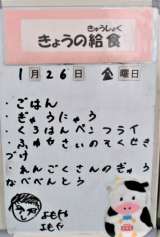 きゅうしょく
きょうの給食
1月26日 金曜日
・ごはん
・ぎゅうにゅう
・くろはんぺんフライ
・ふゆやさいのそくせき
づけ
・れんこくさんのぎゅう
なべべんとう